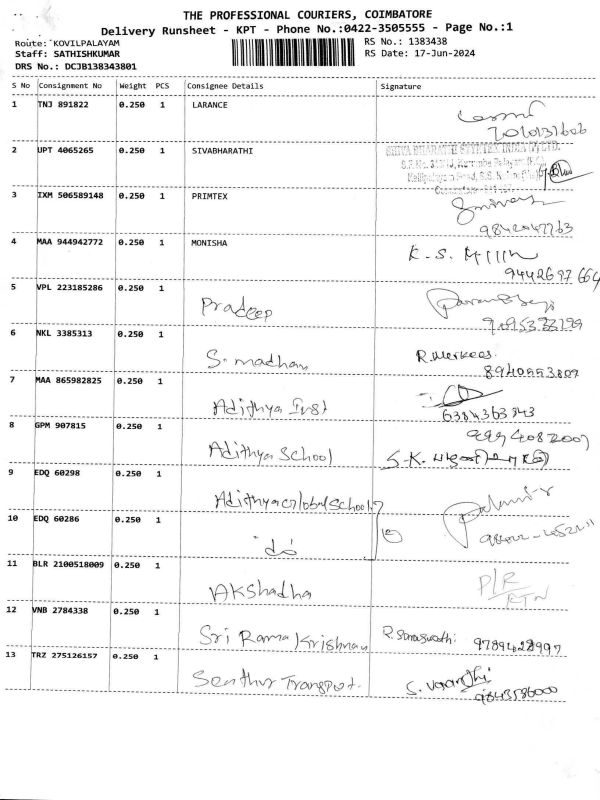 THE PROFESSIONAL COURIERS, COIMBATORE
Delivery Runsheet - KPT - Phone No.:0422-3505555 - Page No.:1
Route: KOVILPALAYAM RS No.: 1383438
Staff: SATHISHKUMAR RS Date: 17-Jun-2024
DRS No.: DCJB138343801
S No Consignment No Weight PCS Consignee Details Signature
1 TNJ 891822 0.250 1 LARANCE
2 UPT 4065265 0.250 1 SIVABHARATHI
3 IXM 506589148 0.250 1 PRIMTEX
4 MAA 944942772 0.250 1 MONISHA K.S.
9442697664
5 VPL 223185286 0.250 1 Pradeep
6 NKL 3385313 0.250 1 S. madhan R.Merkees
8940553809
7 MAA 865982825 0.250 1 Adithya Inst
6384363843
8 GPM 907815 0.250 1 Adithya School 9994082007
S.K.
9 EDQ 60298 0.250 1 Adithya Global School
10 EDQ 60286 0.250 1 "do
11 BLR 2100518009 0.250 1 AKshadha D/R
RTN
12 VNB 2784338 0.250 1 Sri Rama Krishnan R.Saraswathi 9789428997
13 TRZ 275126157 0.250 1 Senthur Transport. S. Vasanthi
9843536000